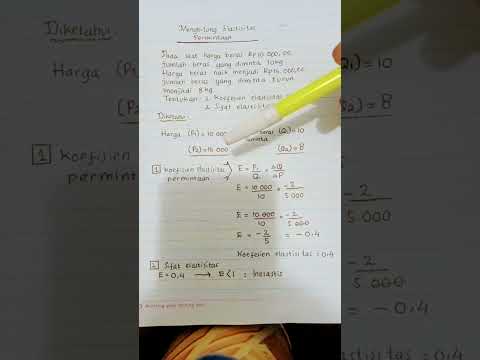 Menghitung Elastisitas
Permintaan
Pada saat harga beras Rp10.000,00
Jumlah beras yang diminta 10kg
Harga beras naik menjadi Rp15.000,00
jumlah beras yang diminta turun
menjadi 8 kg
Tentukan : 1. Koefisien elastisitas
2. Sifat elastisitas
Diketahui
Harga (P1) = 10.000 beras (Q1) = 10
(P2) = 15.000 diminta (Q2) = 8
1 Koefisien Elastisitas E = P1 ΔQ
permintaan Q1 ΔP
E = 10.000 = -2
10 5.000
E = 10.000 = -2
10 5.000
E = -2 = -0.4
5
Koefisien elastisitas = 0.4
2 Sifat elastisitas
E = 0,4 → E < 1 : Inelastis
Diketahui
Harga (P1)
(P2)
1 Koefisien
permin
Q1) = 10
(Q2) = 8
-2
5.000
-2
5.000
= -0.4